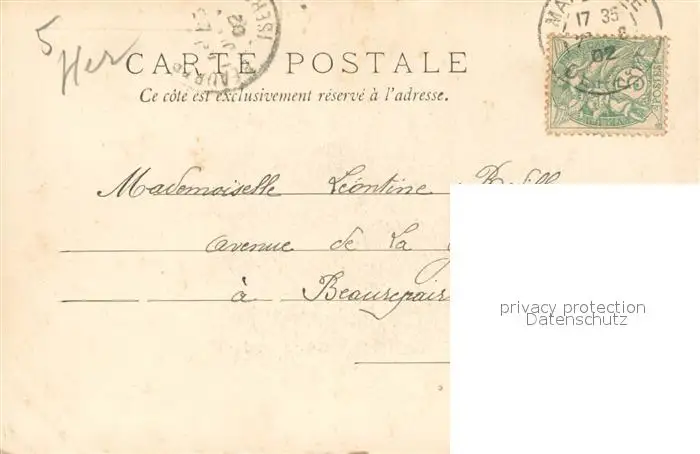 5
Her
ISERE
02
17 35
02
CARTE POSTALE
Ce côté est exclusivement réservé à l'adresse.
POSTES
Mademoiselle Léontine
avenue de La
à Beaurepair
privacy protection
Datenschutz